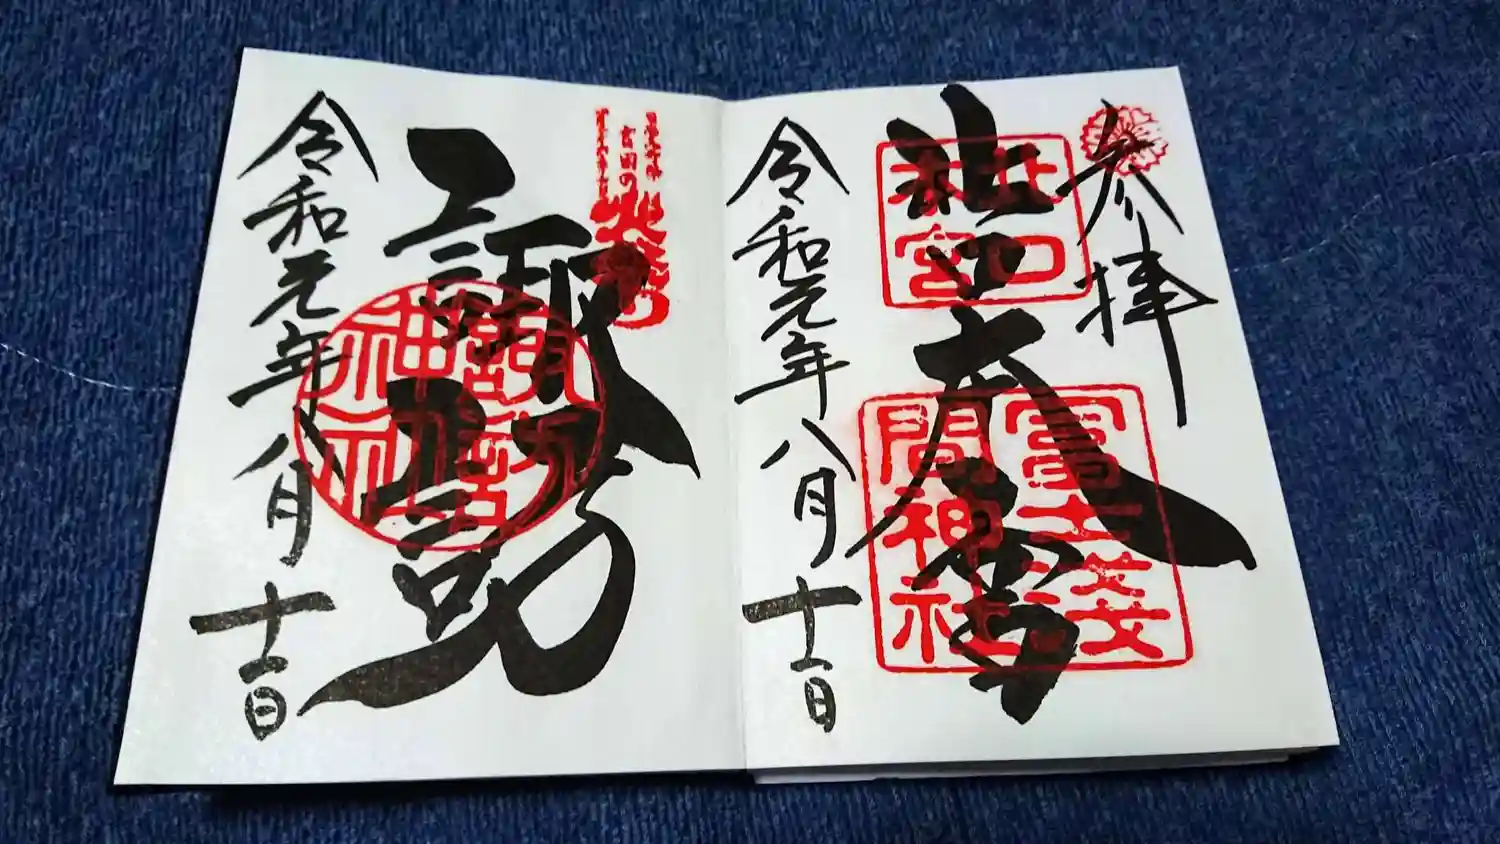 参拝
北口本宮
北口
本宮
冨士淺
間神社
令和元年八月十一日
吉田の火祭
諏訪
諏訪
神社
令和元年八月十一日